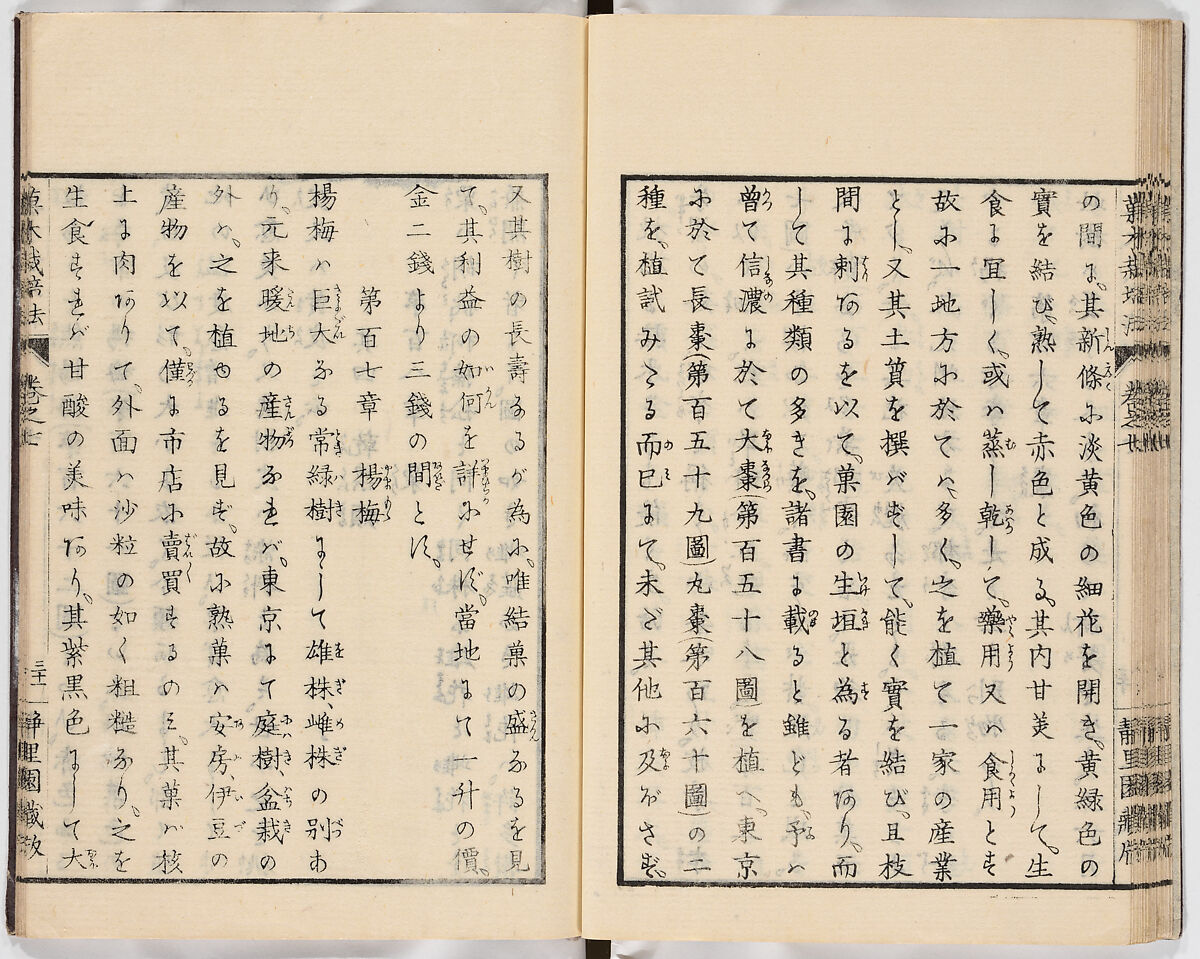 菓木栽培法 卷之七 靜里園藏版
の間に、其新條に淡黄色の細花を開き、黄綠色の
實を結び、熟して赤色と成る、其内甘美にして、生
食に宜しく、或ハ蒸し乾して、藥用又ハ食用とす
故に一地方に於てハ、多く之を植て一家の産業
とし、又其土質を撰バずして、能く實を結び、且枝
間に刺あるを以て、菓園の生垣と為る者あり、而
して其種類の多きを、諸書に載ると雖ども、予ハ
曾て信濃に於て大棗(第百五十八圖)を植へ、東京
に於て長棗(第百五十九圖)丸棗(第百六十圖)の三
種を、植試みたる而巳にて、未だ其他に及ばさず、
又其樹の長壽なるが為に、唯結菓の盛なるを見
て、其利益の如何を詳にせず、當地にて一升の價、
金二錢より三錢の間とす、
第百七章 楊梅
楊梅ハ巨大なる常綠樹にして雄株、雌株の別あ
り、元来暖地の産物なれバ、東京にて庭樹、盆栽の
外ハ、之を植ゆるを見ず、故に熟菓ハ安房、伊豆の
産物を以て、僅に市店に賣買するのミ、其菓ハ核
上に肉ありて、外面ハ沙粒の如く粗糙なり、之を
生食すれバ甘酸の美味あり、其紫黒色にして大
菓木栽培法 卷之七 三十一 靜里園藏版